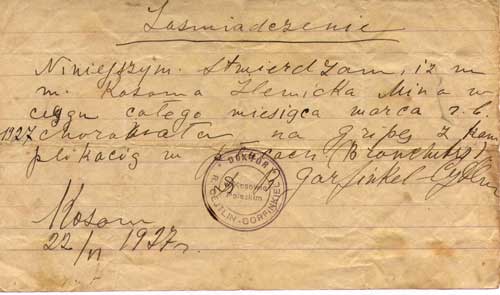 Zaświadczenie
Niniejszym stwierdzam, iż m
m. Kosowa Ilenicka Mina w
ciągu całego miesiąca marca r. b.
1927 chorowała na grypę z kom
plikacią w płucach (Bronchitis)
Garfinkel
DOKTOR
R. CEJTLIN-GORFINKIEL
w Kosowie
Poleskim
Kosow
22/VI 1927 r.